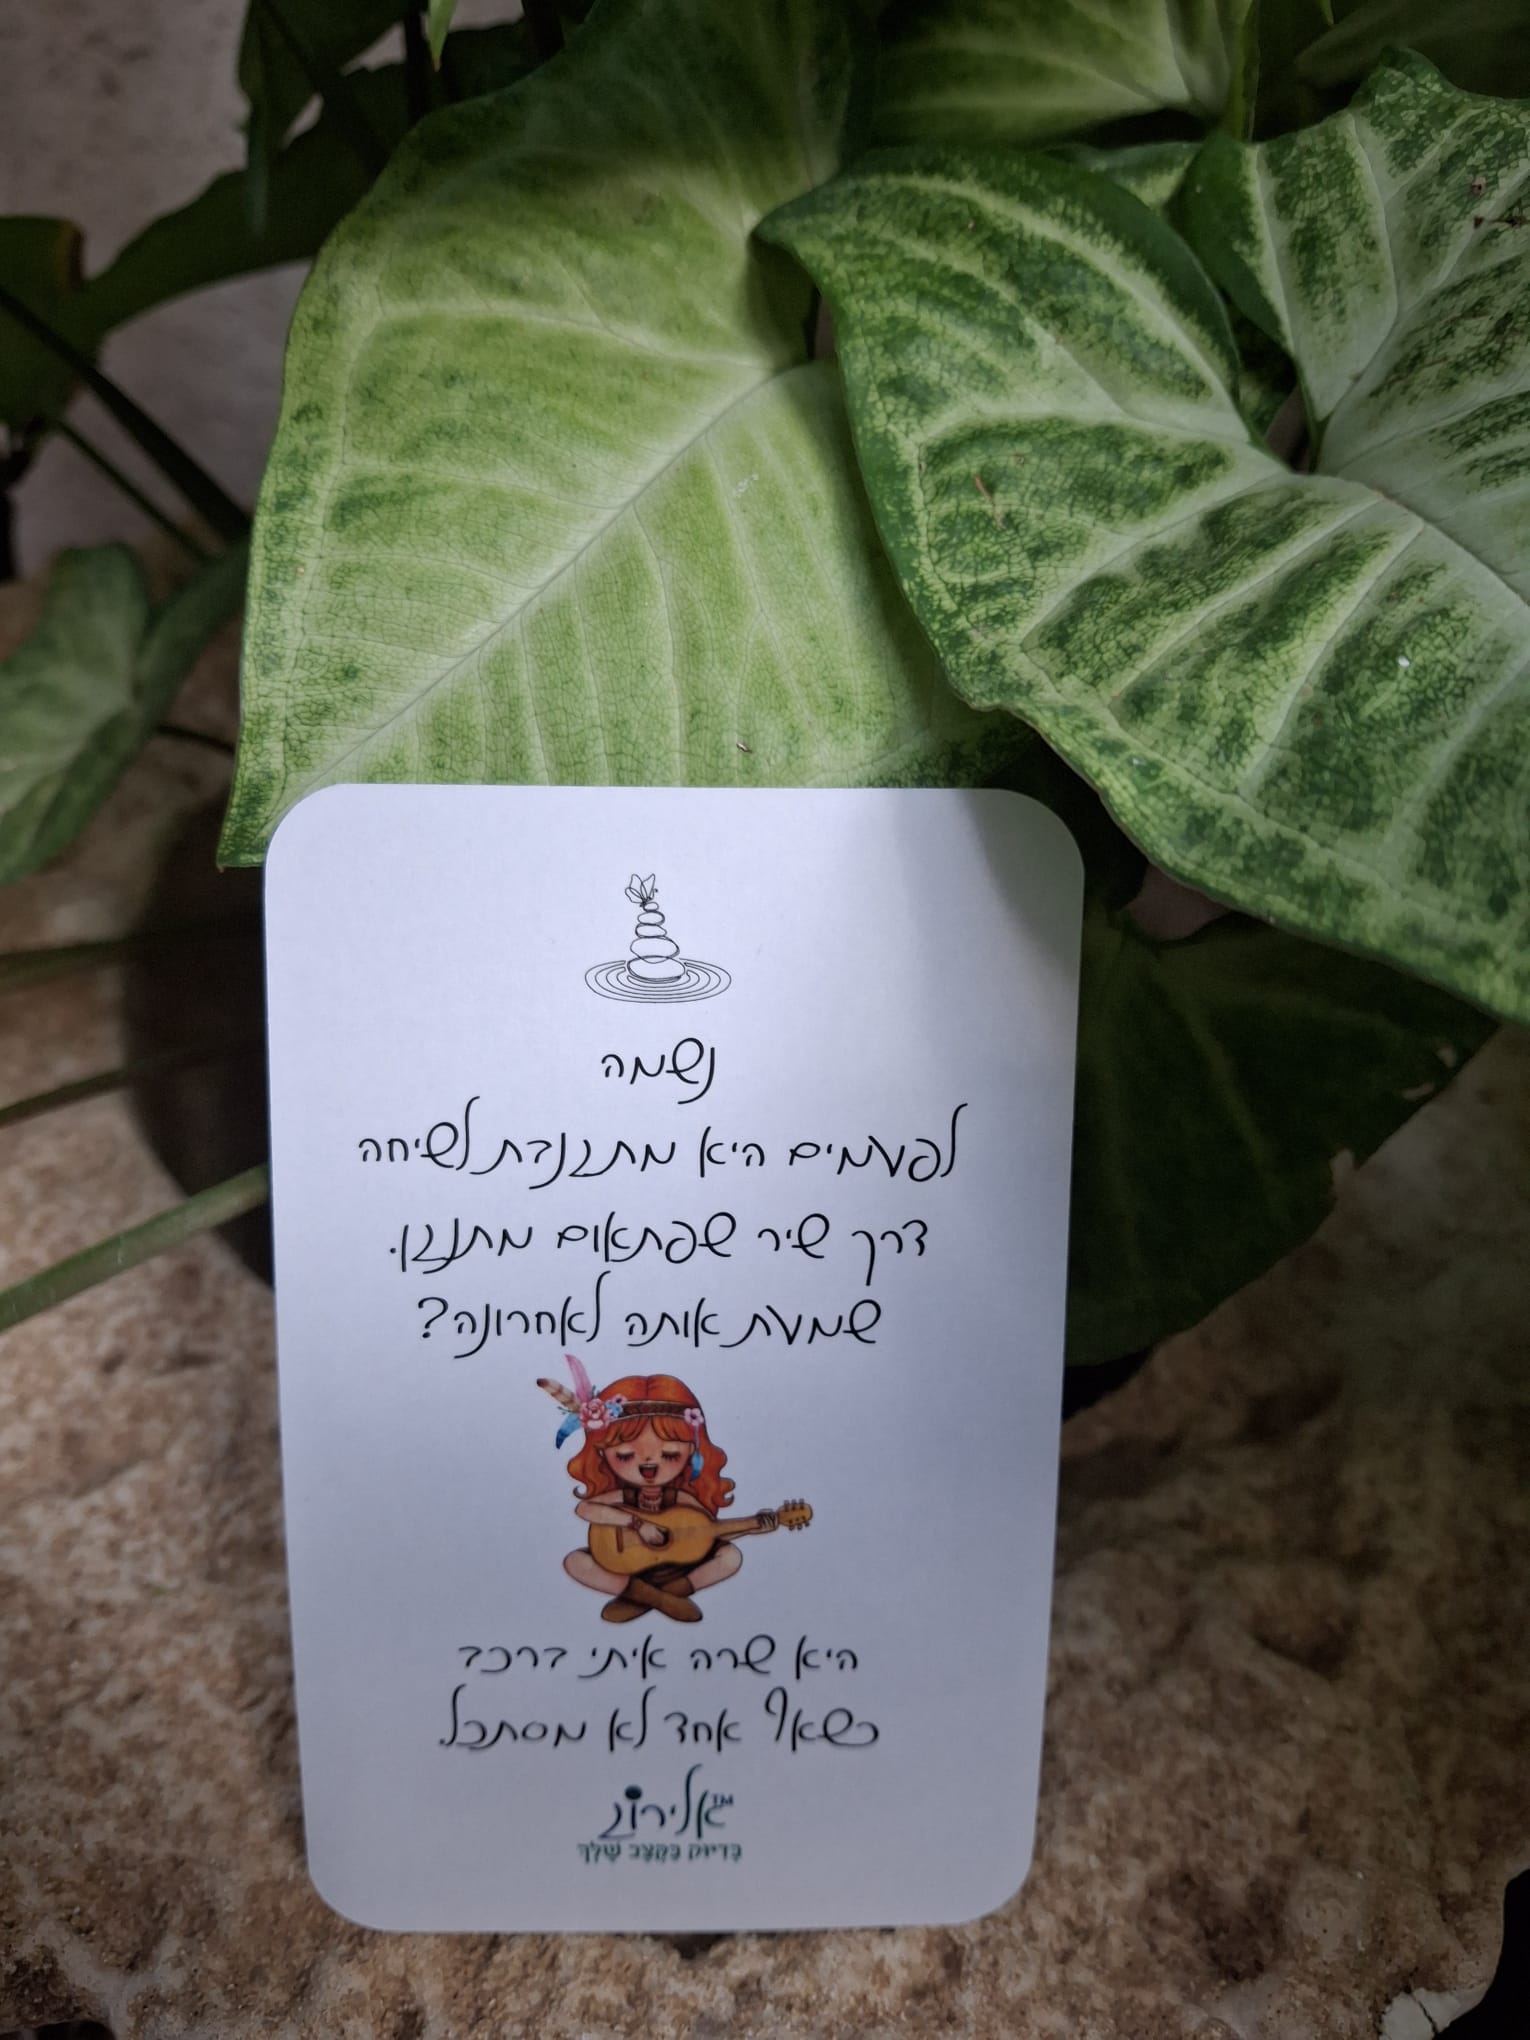 נשמה
לפעמים היא מתגנבת לשיחה
דרך שיר שפתאום מתנגן.
שמעת אותה לאחרונה?
היא שרה איתי ברכב
כשאף אחד לא מסתכל.
אלירוג TM
בְּדִיּוּק בַּקֶּצֶב שֶׁלְּךָ